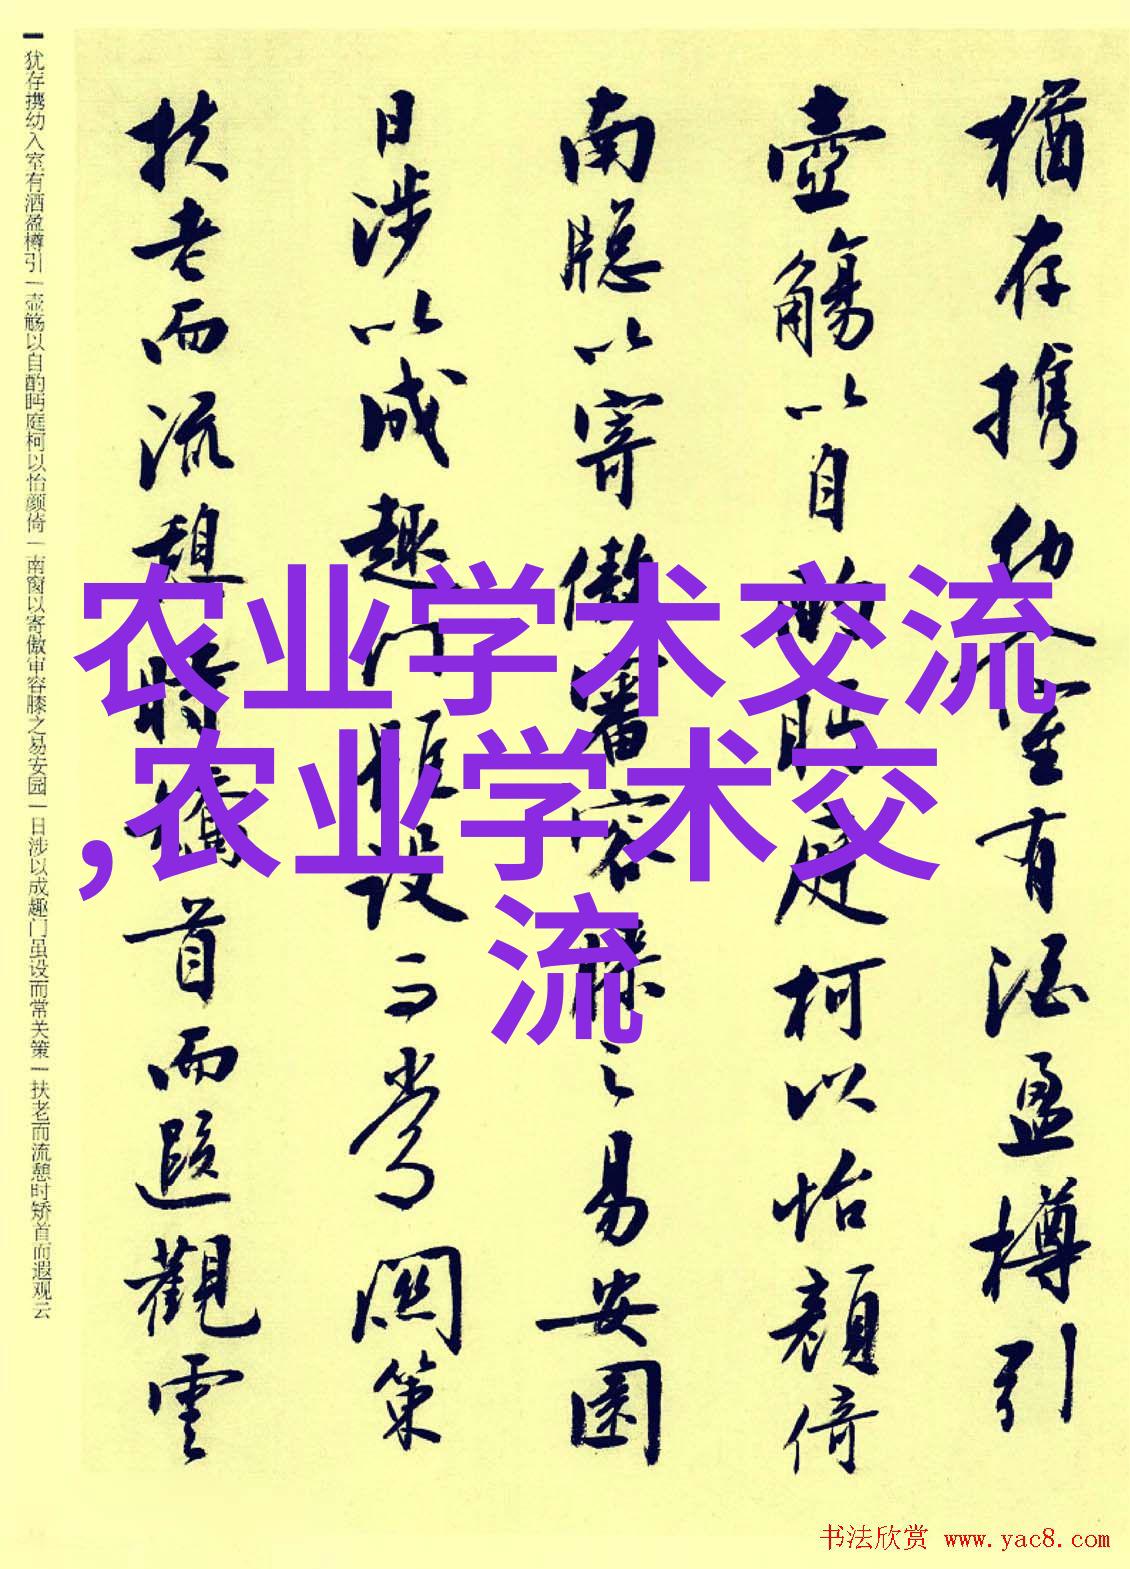 猶存携幼入室有酒盈樽引
壺觴以自酌眄庭柯以怡顏倚
南牕以寄傲審容膝之易安園
日涉以成趣門雖設而常関策
扶老而流憩時矯首而遐觀雲
犹存携幼入室有酒盈樽引|壶觞以自酌眄庭柯以怡颜倚|南窗以寄傲审容膝之易安园|日涉以成趣门虽设而常关策|扶老而流憩时矫首而遐观云
农业学术交流
,农业学术交
流
书法欣赏 www.yac8.com